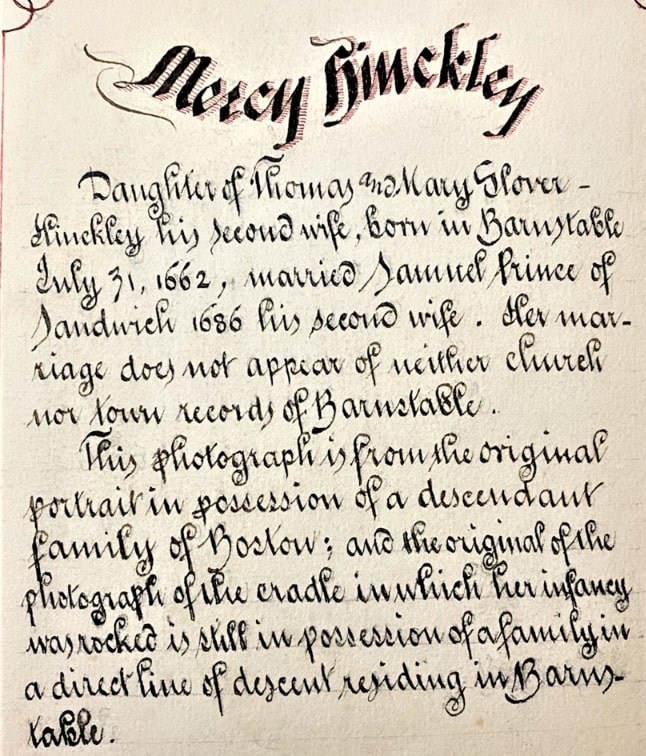 Mercy Hinckley
Daughter of Thomas and Mary Glover-
Hinckley his second wife, born in Barnstable
July 31, 1662, married Samuel Prince of
Sandwich 1686 his second wife. Her mar-
riage does not appear of neither church
nor town records of Barnstable.
This photograph is from the original
portrait in possession of a descendant
family of Boston; and the original of the
photograph of the cradle in which her infancy
was rocked is still in possession of a family in
a direct line of descent residing in Barns-
table.